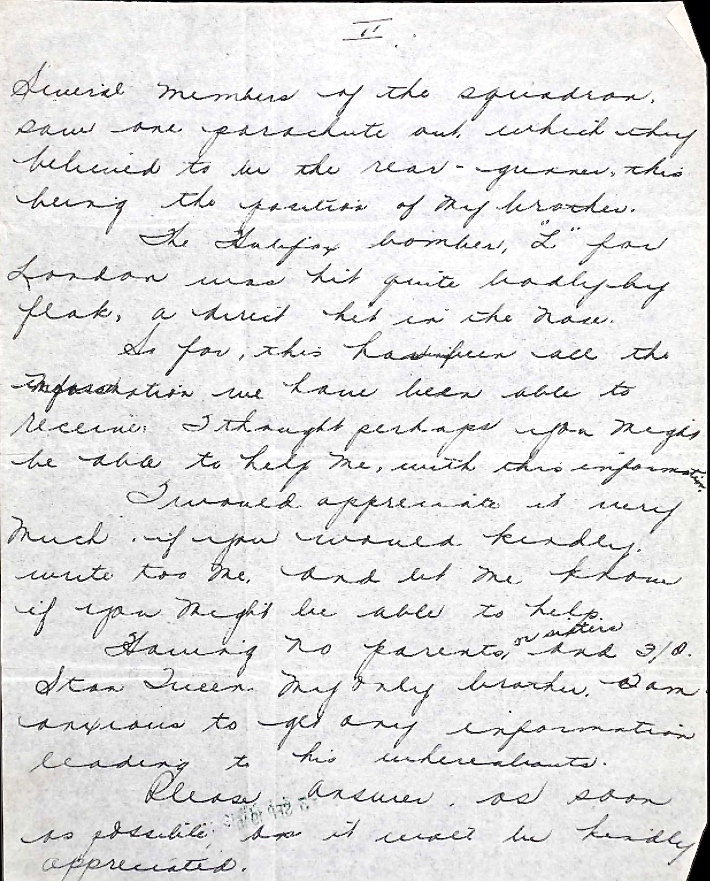 II.
Several members of the squadron.
saw one parachute out, which they
believed to be the rear-gunner, this
being the position of my brother.
The Halifax bomber, "L" for
London was hit quite badly by
flak, a direct hit in the nose.
So far, this has been all the
information we have been able to
receive. I thought perhaps you might
be able to help me, with this information.
I would appreciate it very
much. if you would kindly.
write too me. and let me know
if you might be able to help.
Having no parents, or sisters and
Stan my only brother. I am
anxious to get any information
leading to his whereabouts.
Please answer. as soon
as possible, as it would be kindly
appreciated.